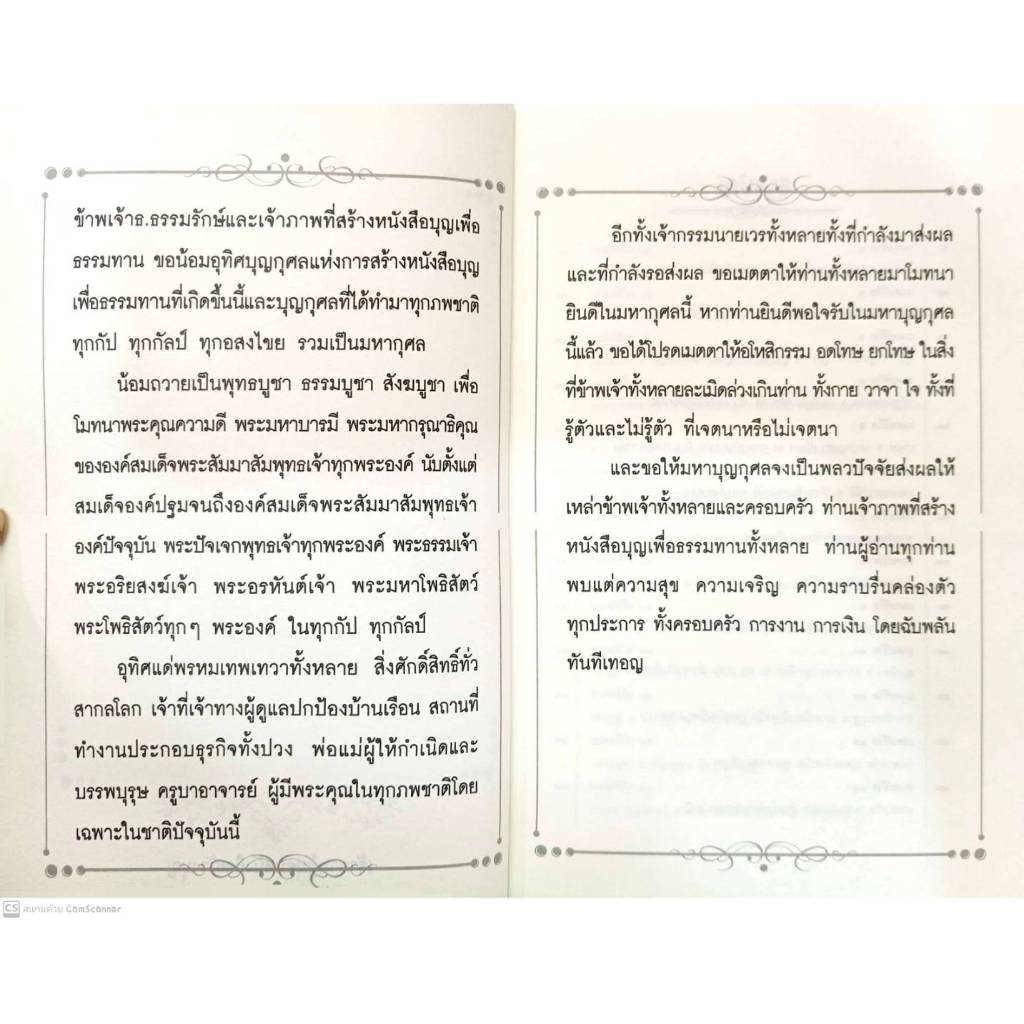 ข้าพเจ้าธ.ธรรมรักษ์และเจ้าภาพที่สร้างหนังสือบุญเพื่อ
ธรรมทาน ขอน้อมอุทิศบุญกุศลแห่งการสร้างหนังสือบุญ
เพื่อธรรมทานที่เกิดขึ้นนี้และบุญกุศลที่ได้ทำมาทุกภพชาติ
ทุกกัป ทุกกัลป์ ทุกอสงไขย รวมเป็นมหากุศล
น้อมถวายเป็นพุทธบูชา ธรรมบูชา สังฆบูชา เพื่อ
โมทนาพระคุณความดี พระมหาบารมี พระมหากรุณาธิคุณ
ขององค์สมเด็จพระสัมมาสัมพุทธเจ้าทุกพระองค์ นับตั้งแต่
สมเด็จองค์ปฐมจนถึงองค์สมเด็จพระสัมมาสัมพุทธเจ้า
องค์ปัจจุบัน พระปัจเจกพุทธเจ้าทุกพระองค์ พระธรรมเจ้า
พระอริยสงฆ์เจ้า พระอรหันต์เจ้า พระมหาโพธิสัตว์
พระโพธิสัตว์ทุกๆ พระองค์ ในทุกกัป ทุกกัลป์
อุทิศแด่พรหมเทพเทวาทั้งหลาย สิ่งศักดิ์สิทธิ์ทั่ว
สากลโลก เจ้าที่เจ้าทางผู้ดูแลปกป้องบ้านเรือน สถานที่
ทำงานประกอบธุรกิจทั้งปวง พ่อแม่ผู้ให้กำเนิดและ
บรรพบุรุษ ครูบาอาจารย์ ผู้มีพระคุณในทุกภพชาติโดย
เฉพาะในชาติปัจจุบันนี้
อีกทั้งเจ้ากรรมนายเวรทั้งหลายทั้งที่กำลังมาส่งผล
และที่กำลังรอส่งผล ขอเมตตาให้ท่านทั้งหลายมาโมทนา
ยินดีในมหากุศลนี้ หากท่านยินดีพอใจรับในมหาบุญกุศล
นี้แล้ว ขอได้โปรดเมตตาให้อโหสิกรรม อดโทษ ยกโทษ ในสิ่ง
ที่ข้าพเจ้าทั้งหลายละเมิดล่วงเกินท่าน ทั้งกาย วาจา ใจ ทั้งที่
รู้ตัวและไม่รู้ตัว ที่เจตนาหรือไม่เจตนา
และขอให้มหาบุญกุศลจงเป็นพลวปัจจัยส่งผลให้
เหล่าข้าพเจ้าทั้งหลายและครอบครัว ท่านเจ้าภาพที่สร้าง
หนังสือบุญเพื่อธรรมทานทั้งหลาย ท่านผู้อ่านทุกท่าน
พบแต่ความสุข ความเจริญ ความราบรื่นคล่องตัว
ทุกประการ ทั้งครอบครัว การงาน การเงิน โดยฉับพลัน
ทันทีเทอญ
CS สแกนด้วย CamScanner